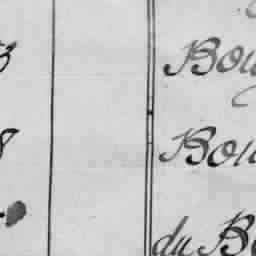 3 Bou
8 Bou
du Bo